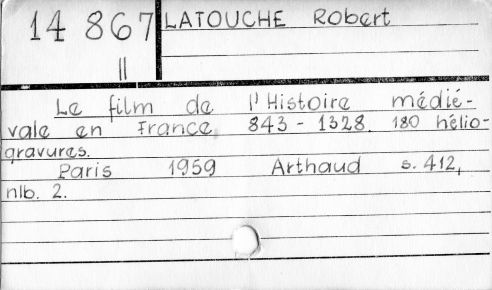 14 867 LATOUCHE Robert
II
Le film de l'Histoire médié-
vale en France 843 - 1328. 180 hélio-
gravures.
Paris 1959 Arthaud s. 412,
nlb. 2.